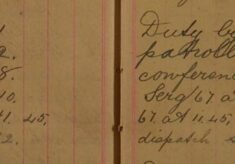 2.
8.
10.
11. 45.
12.
Duty by
patroll
conferen
Serg 67 á
67 at 11.45,
dispatch